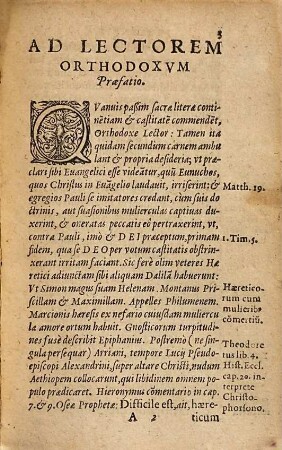 3
AD LECTOREM
ORTHODOXVM
Præfatio.
QVanuis paſsim ſacræ literæ conti-
nẽtiam & caſtitatẽ commendẽt,
Orthodoxe Lector: Tamen ita
quidam ſecundùm carnem ambu-
lant & propria deſideria; vt præ-
clari ſibi Euangelici eſſe videãtur, quũ Eunuchos,
quos Chriſtus in Euãgelio laudauit, irriſerint; &
egregios Pauli ſe imitatores credant, cùm ſuis do-
ctrinis, aut ſuaſionibus mulierculas captiuas du-
xerint, & oneratas peccatis eò pertraxerint, vt,
contrà Pauli, imò & DEI præceptum, primam
fidem, quã ſe DEO per votum caſtitatis obſtrin-
xerant irritam faciant. Sic ferè olim veteres Hæ
retici adiunctam ſibi aliquam Dalilã habuerunt:
Vt Simon magus ſuam Helenam. Montanus Pri-
ſcillam & Maximillam. Appelles Philumenem.
Marcionis hæreſis ex nefario cuiuſdam mulieru
læ amore ortum habuit. Gnoſticorum turpitudi-
nes fusè deſcribit Epiphanius. Poſtremò (ne ſin-
gula perſequar) Arriani, tempore Lucij Pſeudo-
epiſcopi Alexandrini, ſuper altare Chriſti, nudum
Aethiopem collocarunt, qui libidinem omnem po
pulo prædicaret. Hieronymus cõmentario in cap.
7. & 9. Oſeæ Prophetæ: Difficile eſt, ait, hære-
A 2 ticum
Matth. 19.
1. Tim. 5.
Hæretico-
rum cum
mulieribꝰ
cõmertiũ.
Theodore
tus lib. 4.
Hiſt. Eccl.
cap. 20. in-
terprete
Chriſto-
phorſono.